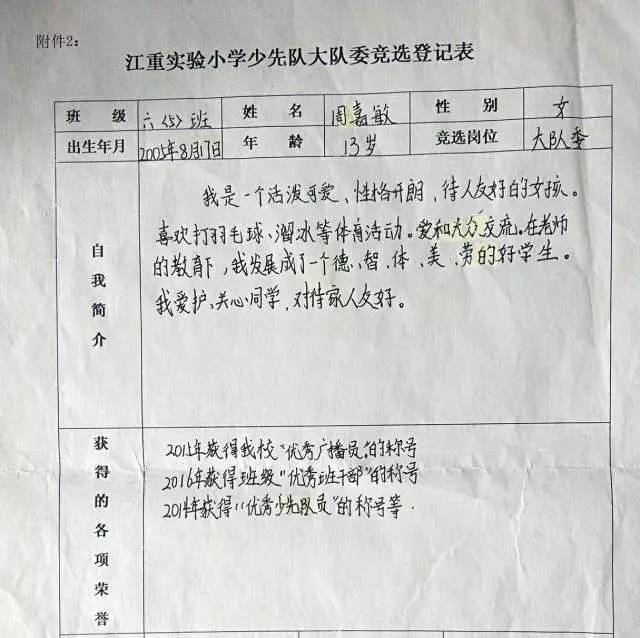 附件2：
江重实验小学少先队大队委竞选登记表
班 级 六〈5〉班 姓 名 周嘉敏 性 别 女
出生年月 2005年8月17日 年 龄 13岁 竞选岗位 大队委
自我简介
我是一个活泼可爱、性格开朗、待人友好的女孩。
喜欢打羽毛球、溜冰等体育活动。爱和大众交流。在老师
的教育下，我发展成了一个德、智、体、美、劳的好学生。
我爱护、关心同学，对待家人友好。
获得的各项荣誉
2015年获得我校“优秀广播员”的称号
2016年获得班级“优秀班干部”的称号
2014年获得“优秀少先队员”的称号等.